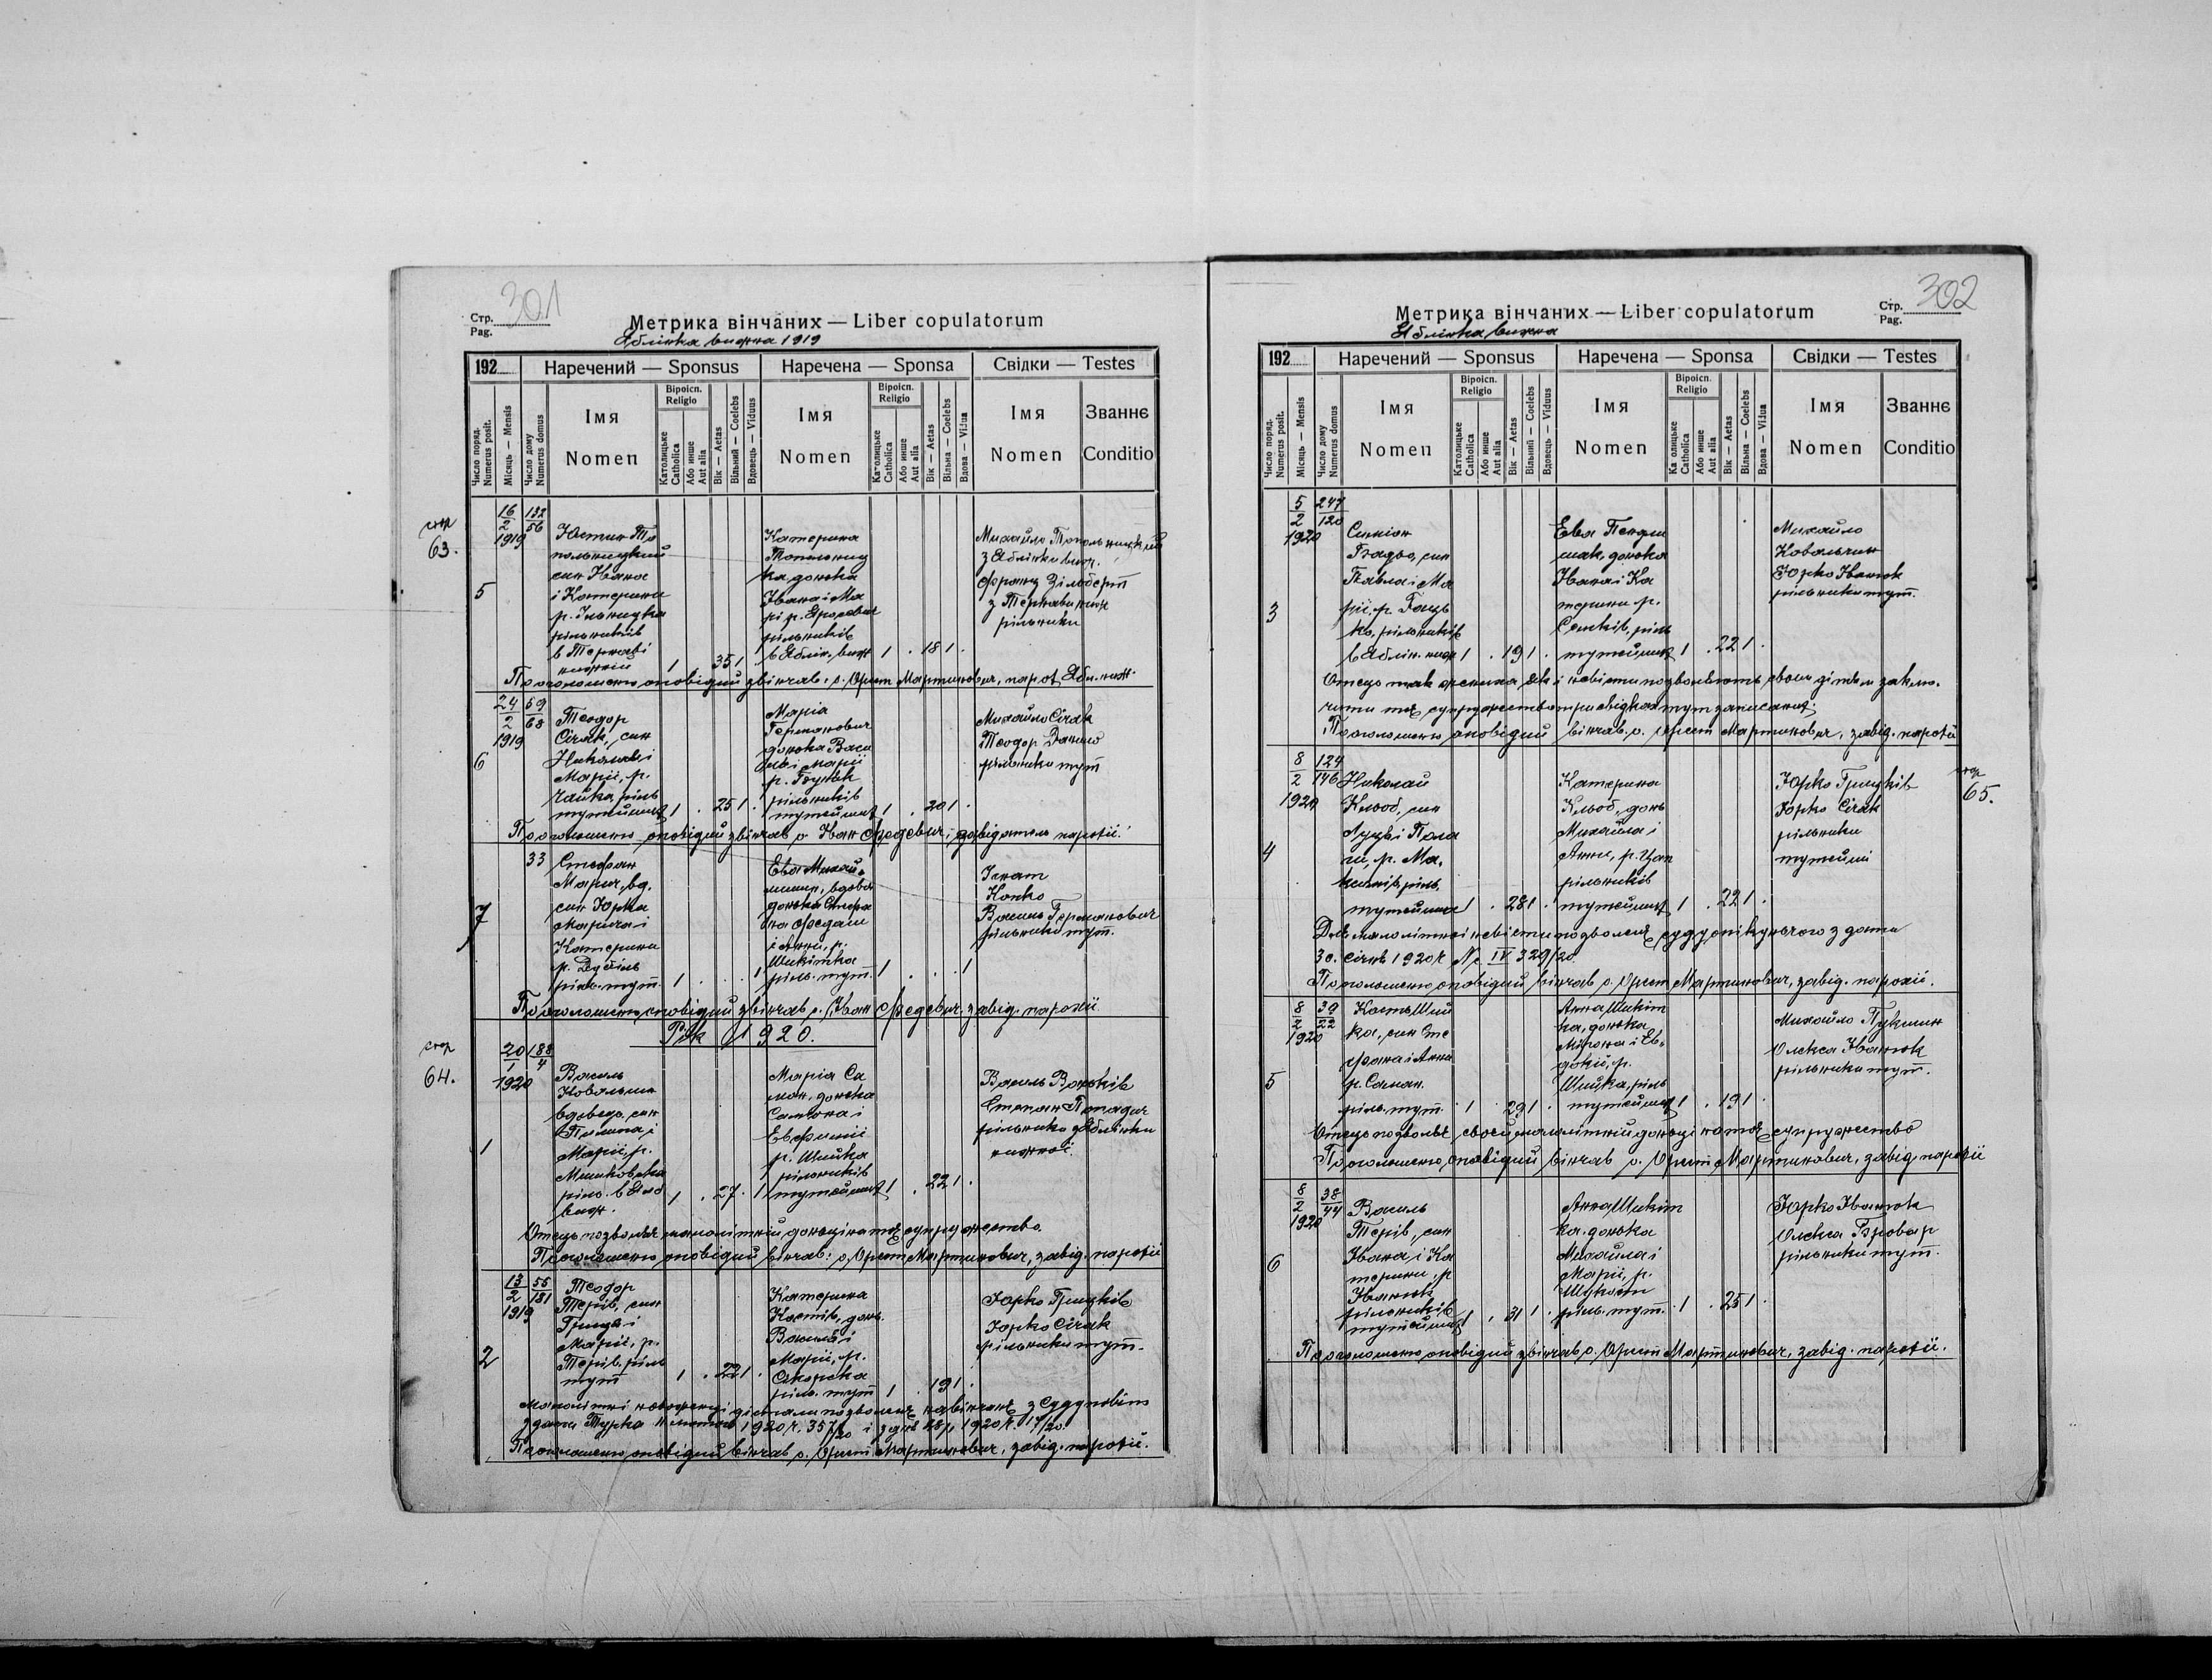 Стр.
Pag. 301
Метрика вінчаних — Liber copulatorum
Яблінка вижна 1919
192
Наречений — Sponsus
Наречена — Sponsa
Свідки — Testes
Число поряд.
Numerus posit.
Місяць — Mensis
Число дому
Numerus domus
Імя
Nomen
Віроісп.
Religio
Католицьке
Catholica
Або инше
Aut alia
Вік — Aetas
Вільний — Coelebs
Вдовець — Viduus
Імя
Nomen
Віроісп.
Religio
Католицьке
Catholica
Або инше
Aut alia
Вік — Aetas
Вільна — Coelebs
Вдова — Vidua
Імя
Nomen
Званнє
Conditio
стор
63.
5
16
2
1919
132
56
Юстин То
польницкий
син Івана
і Катерини
р. Ільницка
рільників
в Тернаві
нижній
1 35 1
Катерина
Топольниц
ка, донька
Івана і Ма
рії р. Яросевич
рільників
в Яблін. вижн
1 . 18 1 .
Михайло Топольницкий
з Яблінки виж.
Франц Зільберт
з Тернави ниж
рільники
По оголошеню оповідий звінчав: о. Орест Мартинович, парох Ябл. ниж.
6
24
2
1919
59
68
Теодор
Сірак, син
Николи і
Марії, р.
Чайка, ріль
тутейших
1 . 25 1 .
Марія
Германович
донька Васи
ля і Марії
р. Буняк
рільників
тутейших
1 . 20 1 .
Михайло Сірак
Теодор Данило
рільники тут
По оголошеню оповідий звінчав о Іван Федевич, завідатель парохії.
7
33
Стефан
Марич, вд.
син Юрка
Марича і
Катерини
р.
ріль. тут.
1 . . . 1
Ева Михай
лишин, вдова
донька Стефа
на Федаш
і Анни, р.
Шикітка
ріль. тут.
1 . . . 1
Ігнат
Копко
Василь Германович
рільники тут.
По оголошеню оповідий звінчав о. Іван Федевич, завід. парохії
Рік 1920.
стор
64.
1
20
1
1920
188
4
Василь
Ковальчин
вдовець, син
Пилипа і
Марії, р.
Мошковска
ріль. в Ябл
вижн.
1 . 27 . 1
Марія Са
мон, донька
Самсона і
Евфимії
р. Шийка
рільників
тутейших
1 . 22 1 .
Василь Воньків
Степан Попадич
рільники з Яблінки
нижної.
Отець позволяє малолітній доньці на тоє супружество.
По оголошеню оповідий вінчав: о. Орест Мартинович, завід. парохії
2
13
2
1919
55
181
Теодор
Терів, син
Гриця і
Марії, р.
Терів, ріль
тут
1 . 22 1 .
Катерина
Костів, донь.
Василя і
Марії, р.
Сікорска
ріль. тут
1 . 19 1 .
Юрко Грицків
Юрко Сірак
рільники тут.
Малолітні новоженці дістали позволенє на вінчанє з Суду повіт
з дати Турка 11 лютого 1920 Ч. 357/20 і з дня 1920 Ч. 17/20
По оголошеню оповідий вінчав о. Орест Мартинович, завід. парохії.
Стр.
Pag. 302
Метрика вінчаних — Liber copulatorum
Яблінка вижна
192
Наречений — Sponsus
Наречена — Sponsa
Свідки — Testes
Число поряд.
Numerus posit.
Місяць — Mensis
Число дому
Numerus domus
Імя
Nomen
Віроісп.
Religio
Католицьке
Catholica
Або инше
Aut alia
Вік — Aetas
Вільний — Coelebs
Вдовець — Viduus
Імя
Nomen
Віроісп.
Religio
Ка олицьке
Catholica
Або инше
Aut alia
Вік — Aetas
Вільна — Coelebs
Вдова — Vidua
Імя
Nomen
Званнє
Conditio
3
5
2
1920
247
120
Симіон
Бадьо, син
Павла і Ма
рії, р. Гоць
ко, рільників
в Яблін. ниж
1 . 19 1 .
Ева
шак, донька
Івана і Ка
терини р.
Сеньків, ріль
тутейших
1 . 22 1 .
Михайло
Ковальчин
Юрко Іванюк
рільники тут.
Отець так жениха як і невісти позволяють своїм дітям заклю.
чити тоє супружество при свідках тут записаних.
По оголошеню оповідий вінчав о. Орест Мартинович, завід. парохії
4
8
2
1920
124
146
Николай
Кльоб, син
Луця і Пала
гії, р. Ма.
ксимів, ріль.
тутейших
1 . 28 1 .
Катерина
Кльоб, донь
Михайла і
Анни, р. Цап
рільників
тутейших
1 . 22 1 .
Юрко Грицків
Юрко Сірак
рільники
тутейші
стор
65.
Для малолітної невісти позволенє суду опікунчого з дати
30. січня 1920 Ч. Nc. IV 329/20
По оголошеню оповідий вінчав о. Орест Мартинович, завід. парохії.
5
8
2
1920
39
22
Кость Ший
ка, син Сте
фана і Анни
р. Саган.
ріль. тут.
1 . 29 1 .
Анна Шикіт
ка, донька
Мирона і Ев.
докії, р.
Шийка, ріль
тутейших
1 . 19 1 .
Михайло Пукшин
Олекса Іванюк
рільники тут.
Отець позволяє своїй малолітній доньці на тоє супружество
По оголошеню оповідий вінчав о. Орест Мартинович, завід. парохії
6
8
2
1920
38
44
Василь
Терів, син
Івана і Ка
терини, р
Іванюк
рільників
тутейших
1 . 31 1 .
Анна Шикіт
ка, донька
Михайла і
Марії, р.
ріль. тут.
1 . 25 1 .
Юрко Іванюк
Олекса Бровар
рільники тут.
По оголошеню оповідий звінчав о. Орест Мартинович, завід. парохії.